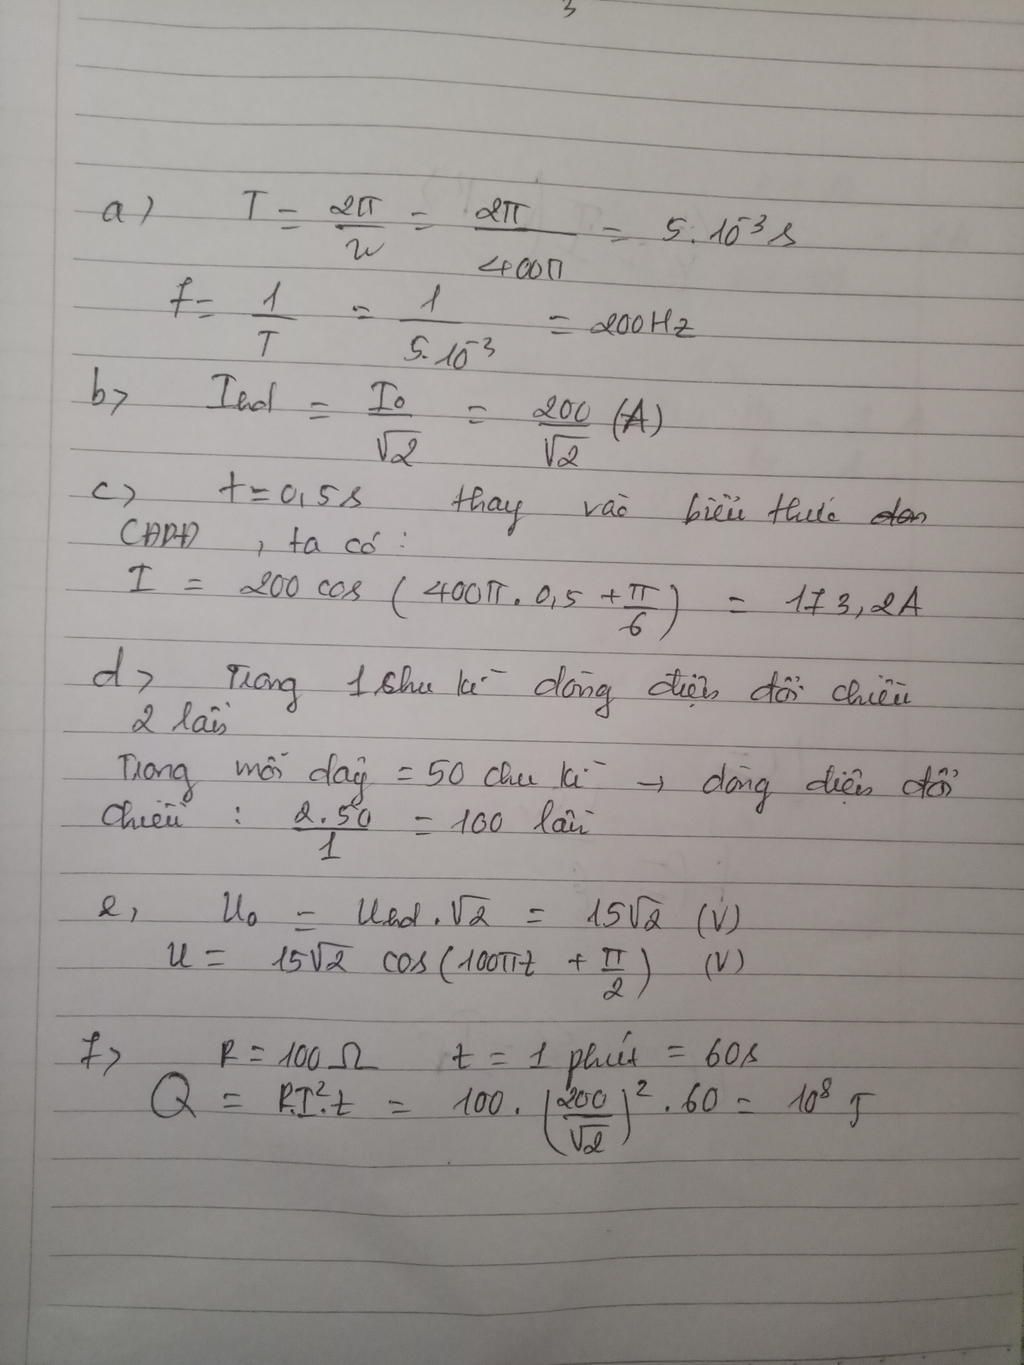 3
a) T = 2π/w = 2π/400π = 5.10⁻³ s
f = 1/T = 1/5.10⁻³ = 200Hz
b) Ihd = I₀/√2 = 200/√2 (A)
c) t = 0,5s thay vào biểu thức
CĐDĐ, ta có :
I = 200 cos (400π. 0,5 + π/6) = 173,2A
d) Trong 1 chu kì dòng điện đổi chiều
2 lần
Trong mỗi dây = 50 chu kì → dòng điện đổi
chiều : 2.50/1 = 100 lần
e, U₀ = Uhd.√2 = 15√2 (V)
u = 15√2 cos(100πt + π/2) (V)
f) R = 100Ω t = 1 phút = 60s
Q = R.I².t = 100. (200/√2)² . 60 = 10⁸ J